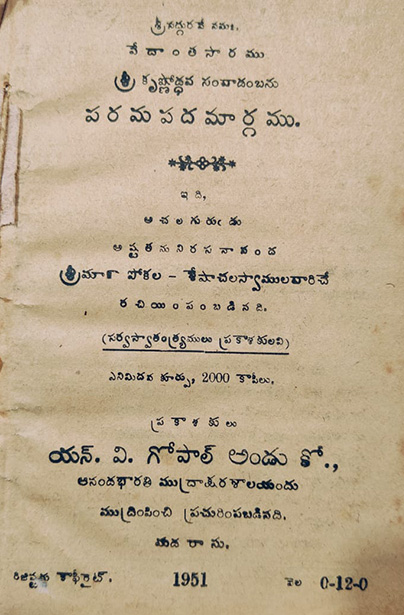 శ్రీసద్గురవేనమః.
వేదాంతసారము
శ్రీ కృష్ణోద్ధవ సంవాదంబను
పరమపదమార్గము.
ఇది,
అచలగురుఁడు
అష్టతనునిరసనానంద
శ్రీమాకా పోకల - శేషాచలస్వాములవారిచే
రచియింపంబడినది.
(సర్వస్వాతంత్ర్యములు ప్రకాశకులవి)
ఎనిమిదవ కూర్పు, 2000 కాపీలు.
ప్రకాశకులు
యన్. వి. గోపాల్ అండు కో.,
ఆనందభారతి ముద్రాక్షరశాలయందు
ముద్రింపించి ప్రచురింపబడినది.
మదరాసు.
రిజిష్టరు కాఫీరైట్. 1951 వెల 0-12-0